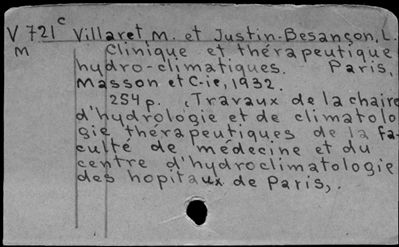 V 721c Villaret, M. et Justin-Besançon, L.
M Clinique et thérapeutique
hydro-climatiques. Paris,
Masson et C-ie, 1932.
254 p. (Travaux de la chaire
d'hydrologie et de climatolo
gie thérapeutiques de la Fa-
culté de médecine et du
centre d'hydroclimatologie
des hopitaux de Paris,.